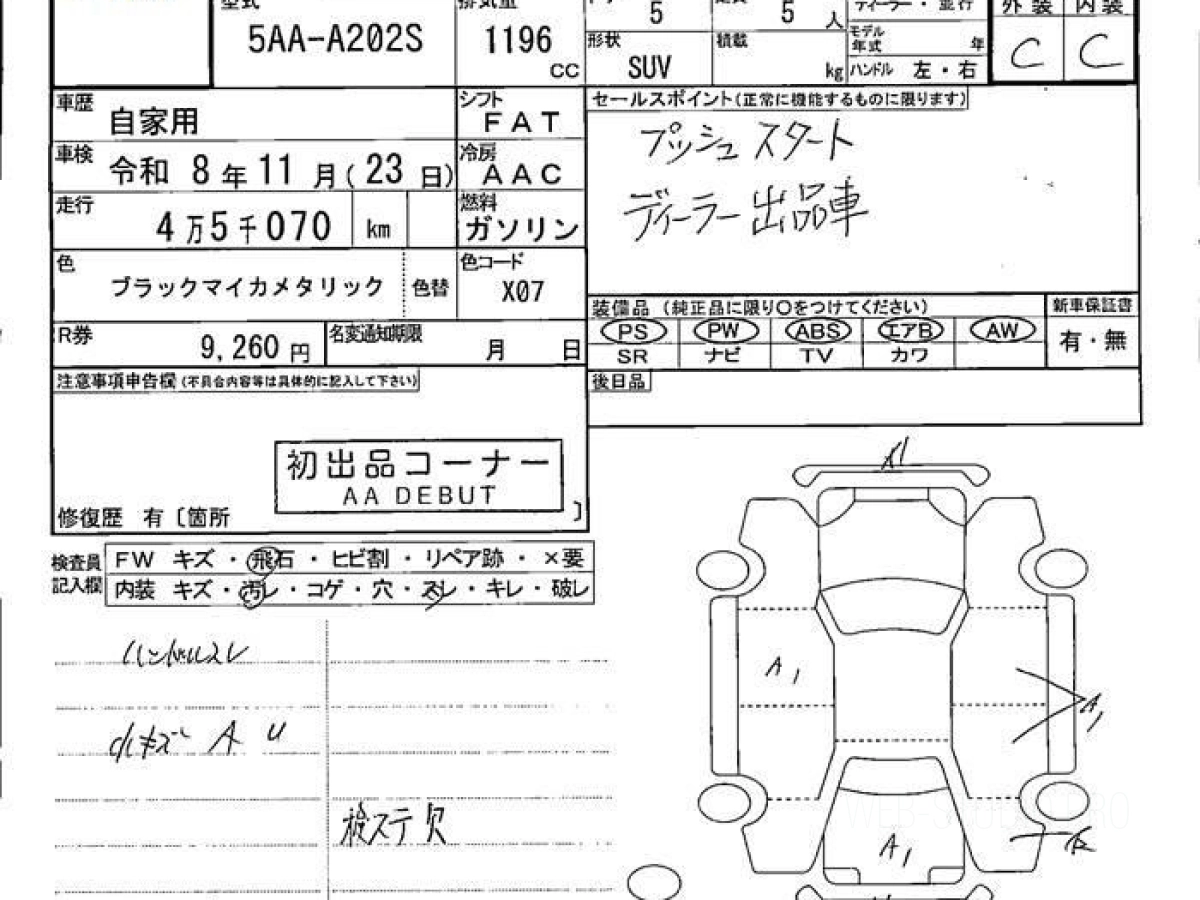 型式
5AA-A202S
排気量
1196
CC
5
5
人
ディーラー・並行
外装 内装
C C
形状
SUV
積載
kg
モデル
年式
年
ハンドル 左・右
車歴
自家用
シフト
FAT
車検
令和 8年 11月(23日)
冷房
AAC
走行
4万5千070 km
燃料
ガソリン
色
ブラックマイカメタリック
色替
色コード
X07
R券
9,260円
名変通知期限
月 日
注意事項申告欄(不具合内容等は具体的に記入して下さい)
初出品コーナー
AA DEBUT
修復歴 有〔箇所 〕
セールスポイント(正常に機能するものに限ります)
プッシュスタート
ディーラー出品車
装備品 (純正品に限り〇をつけてください)
新車保証書
PS PW ABS エアB AW
有・無
SR ナビ TV カワ
後日品
検査員
記入欄
FW キズ・飛石・ヒビ割・リペア跡・×要
内装 キズ・汚レ・コゲ・穴・スレ・キレ・破レ
ハンドルスレ
小キズ A U
検ステ欠
A1
A1
A1